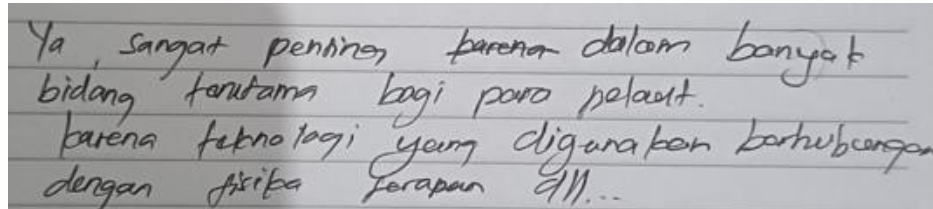 Ya, sangat penting karena dalam banyak
bidang terutama bagi para pelaut.
karena teknologi yang digunakan berhubungan
dengan fisika terapan dll...